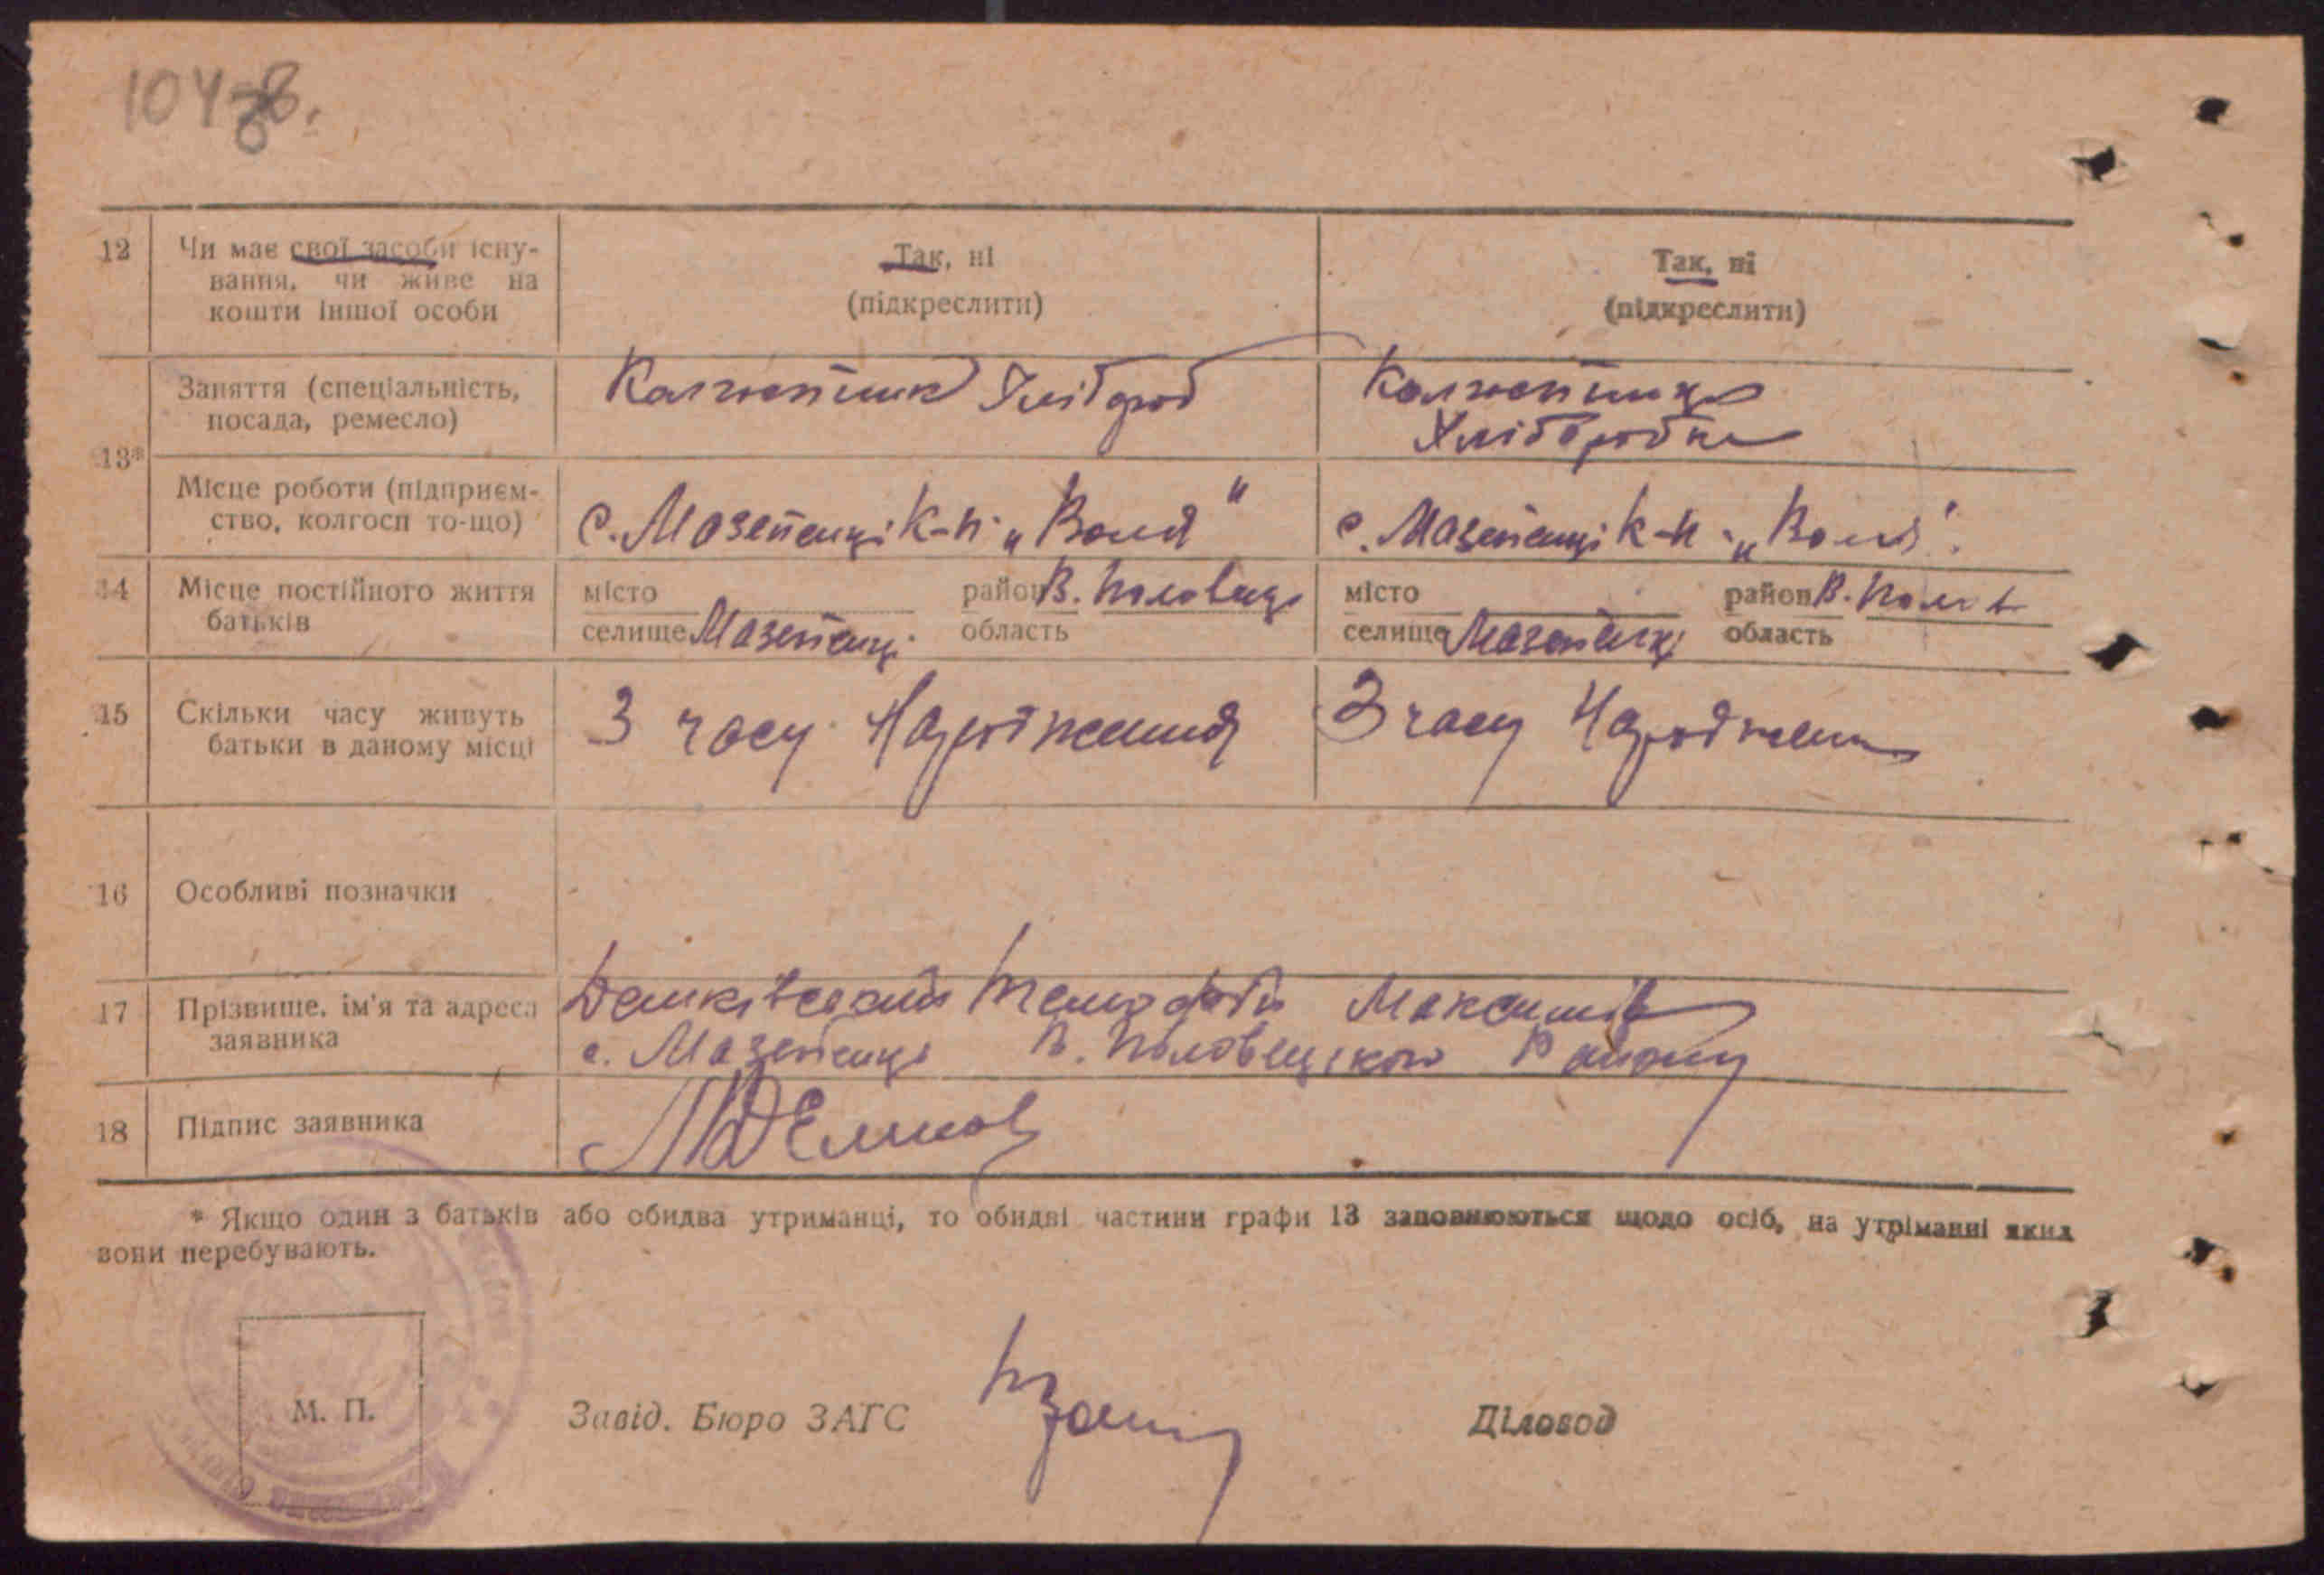 12 Чи має свої засоби існу-
вання, чи живе на
кошти іншої особи
Так, ні
(підкреслити)
Так, ні
(підкреслити)
13*
Заняття (спеціальність,
посада, ремесло)
Колгоспник Хлібороб
Колгоспниця
Хлібобробка
Місце роботи (підприєм-
ство, колгосп то-що)
с. Мазепенці к-п „Воля"
с. Мазепенці к-п „Воля".
14 Місце постійного життя
батьків
місто район В. Половецьк
селище Мазепенці область
місто район В. Полов
селище Мазепенці область
15 Скільки часу живуть
батьки в даному місці
З часу Народження
З часу Народження
16 Особливі позначки
17 Прізвище, ім'я та адреса
заявника
Демківський Тимофій Максимів
с. Мазепенці В. Половецького Району
18 Підпис заявника
* Якщо один з батьків або обидва утриманці, то обидві частини графи 13 заповнюються щодо осіб, на утріманні яких
вони перебувають.
М. П.
Завід. Бюро ЗАГС
Діловод